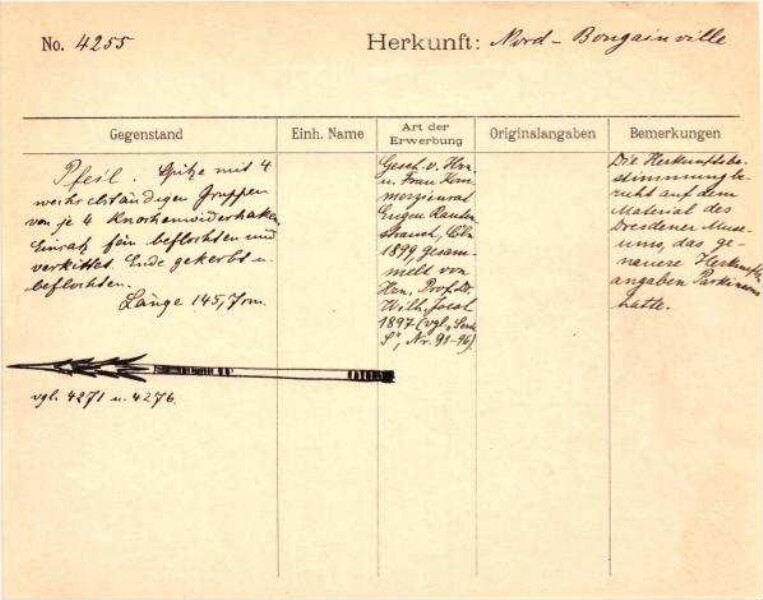 No. 4255
Herkunft: Nord-Bougainville
Gegenstand
Einh. Name
Art der
Erwerbung
Originalangaben
Bemerkungen
Pfeil. Spitze mit 4
wechselständigen Gruppen
von je 4 Knochenwiderhaken,
Einsatz fein beflochten und
verkittet. Ende gekerbt u.
beflochten.
Länge 145,7 cm.
vgl. 4271 u. 4276.
Gesch. v. Hrn.
u. Frau Kom
merzienrat
Eugen Rauten
strauch, Cöln
1899, gesam-
melt von
Hrn. Prof. Dr.
Wilh. Joest
1897 (vgl. „
S", Nr. 91-96)
Die Herkunftsbe-
stimmung be-
ruht auf dem
Material des
Dresdener Muse-
ums, das ge-
nauere Herkunfts
angaben Parkinsons
hatte.